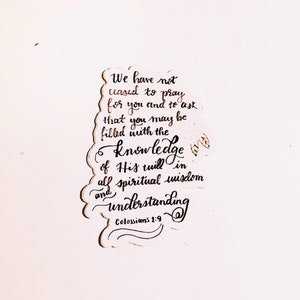 We have not
ceased to pray
for you and to ask
that you may be
filled with the
knowledge
of His will in
all spiritual wisdom
and
understanding
Colossians 1:9